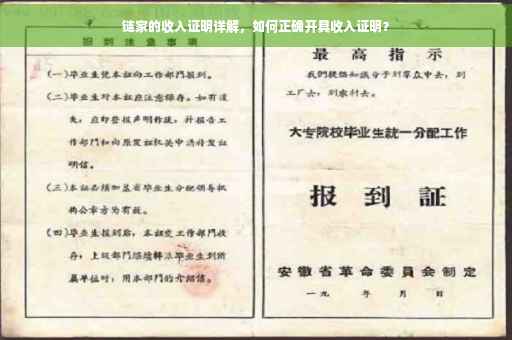 链家的收入证明详解，如何正确开具收入证明？
报到注意事项
(一)毕业生凭本证向工作部门报到。
(二)毕业生对本证应注意保存。如有遗
失，应即登报声明作废，并报告工
作部门和向原发证机关申请补发证
明信。
(三)本证必须加盖省毕业生分配领导机
构公章方为有效。
(四)毕业生报到后，本证交工作部门收
存；上级部门
属单位时，用本部门的介绍信。
最高指示
我们提倡知识分子到群众中去，到
工厂去，到农村去。
大专院校毕业生统一分配工作
报到证
安徽省革命委员会制定
一九 年 月 日